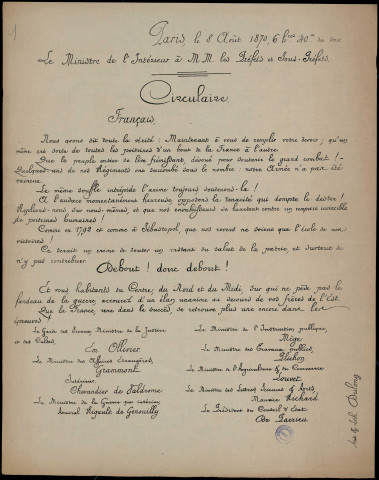 Paris, le 8 Août 1870, 6 hres 40m du soir
Le Ministre de l'Intérieur à M.M. les Préfets et Sous-Préfets.
Circulaire
Français,
Nous avons dit toute la vérité : Maintenant à vous de remplir votre devoir ; qu'un
même cri sorte de toutes les poitrines d'un bout de la France à l'autre.
Que le peuple entier se lève frémissant, dévoué pour soutenir le grand combat ! _
Quelques-uns de nos Régiments ont succombé sous le nombre : notre Armée n'a pas été
vaincue.
Le même souffle intrépide l'anime toujours soutenons-la !
A l'audace momentanément heureuse opposons la tenacité qui dompte le destin !
Replions-nous sur nous-mêmes, et que nos envahisseurs se heurtent contre un rempart invincible
de poitrines humaines !
Comme en 1792 et comme à Sébastopol, que nos revers ne soient que l'école de nos
victoires !
Ce serait un crime de douter un instant du salut de la patrie, et surtout de
n'y pas contribuer.
Debout ! donc debout !
Et vous habitants du Centre, du Nord et du Midi, sur qui ne pèse pas le
fardeau de la guerre, accourez d'un élan unanime au secours de vos frères de l'Est.
Que la France, une dans le succès, se retrouve plus une encore dans les
épreuves !
Le Garde des Sceaux, Ministre de la Justice
et des Cultes,
Em. Ollivier
Le Ministre des Affaires Etrangères,
Grammont
Intérieur
Chevandier de Valdrôme
Le Ministre de la Guerre par intérim,
Général Rigault de Genouilly
Le Ministre de l'Instruction publique,
Mège
Le Ministre des Travaux publics,
Plichon
Le Ministre de l'Agriculture & du Commerce
Louvet
Le Ministre des Lettres, Sciences & Arts,
Maurice Richard
Le Président du Conseil d'Etat
De Parrieu
Dulong